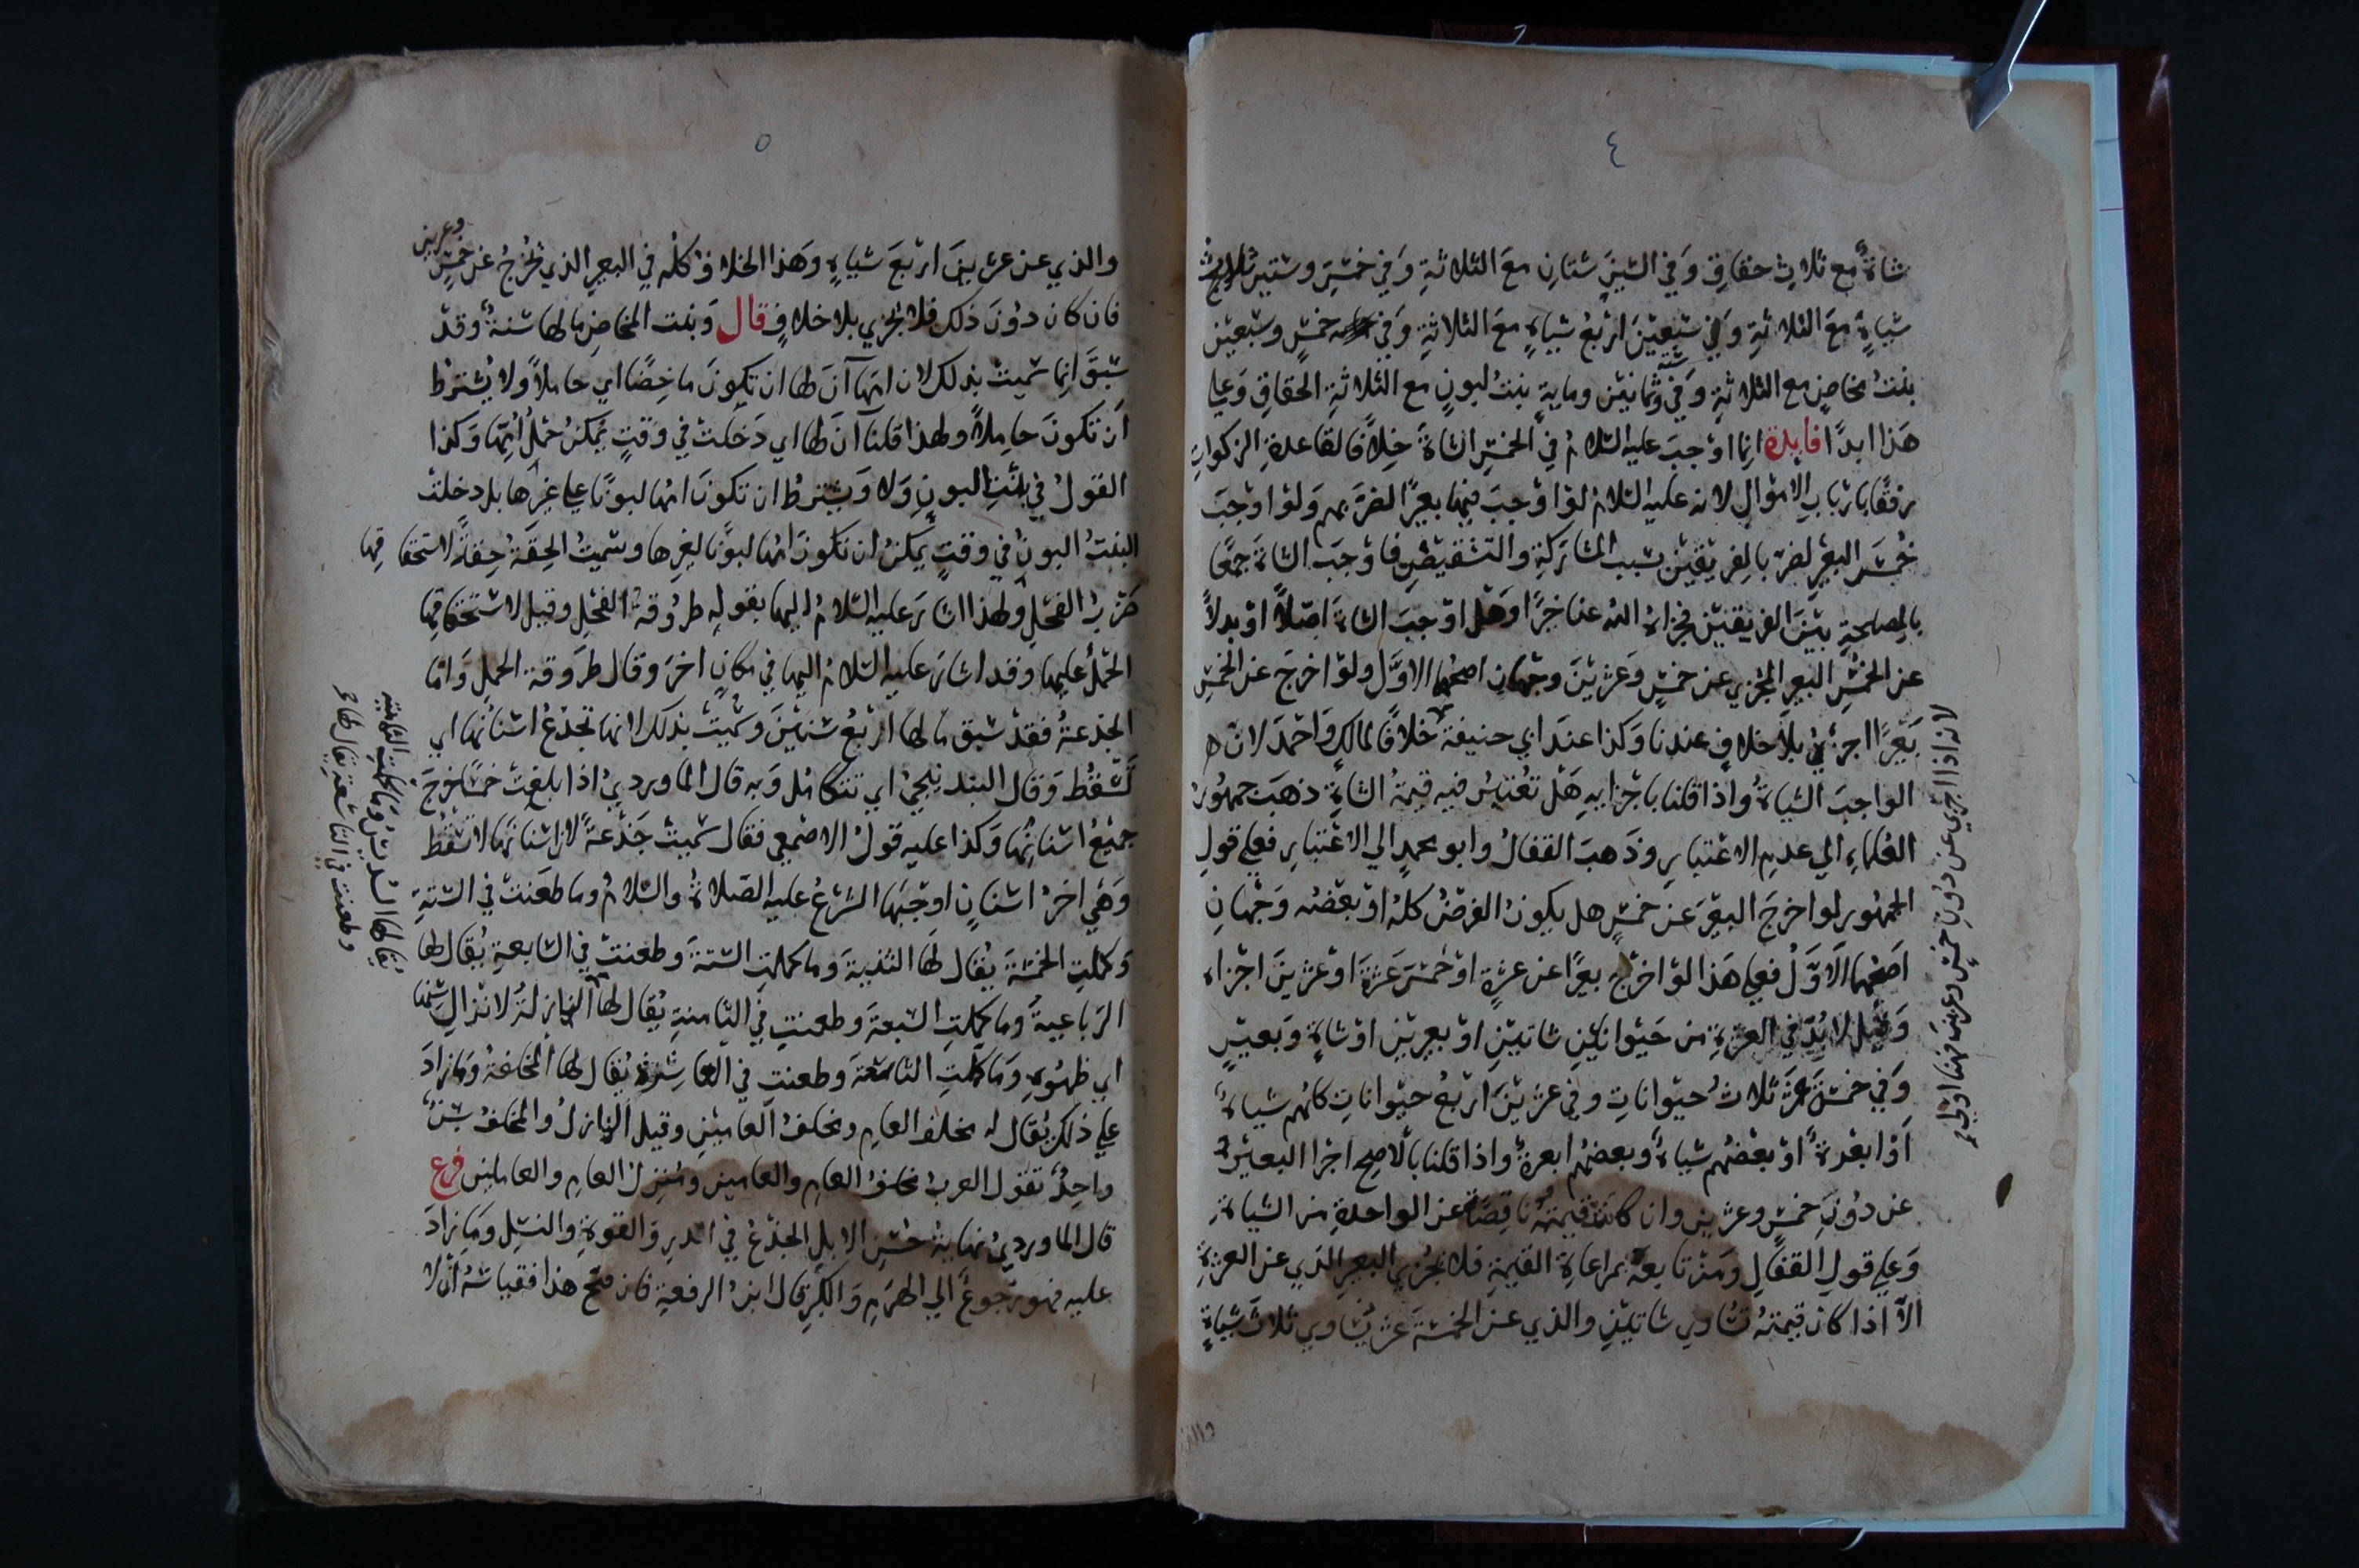 ٤
شاةٌ مع ثلاث حقاقٍ وَفي الستينَ شتان معَ الثلاثةِ وَفي خمسٍ وستين ثلاث
شياهٍ معَ الثلاثةِ وَفي سبعينَ اربعُ شياهٍ معَ الثلاثةِ وَفي خمسٍ وسبعين
بنتُ مخاضٍ مع الثلاثةِ وَفي ستة وثمانين ومايةٍ بنتُ لبونٍ مع الثلاثةِ الحقاقِ وَعلي
هَذا ابدًا فايدة انما اوجبَ عليه السّلامُ في الخمسِ الشاةَ خِلافًا لقاعدةِ الزكواتِ
رفقًا بارْبابِ الاموالِ لانه عليه السّلامُ لوْ اوْجبَ فيها بعيرًا لضرَّ بهم وَلوْ اوْجبَ
خُمسَ البعيرِ لضر بالفريقين بسبب المشاركةِ والتشقيصِ فاوْجبَ الشاةَ جمعًا
بالمصلحةِ بيْنَ الفريقيْنِ فجزاهُ اللهُ عنا خيرًا وَهَل اوْجبَ الشاةَ اصْلًا اوْ بدلًا
عن الخمْسِ البعيرِ المجْزِي عن خمسٍ وَعشْرينَ وجهانِ اصحُّهما الاوَّل ولوْ اخرجَ عن الخمْسِ
بَعيرًا اجزئ بلا خلافٍ عندنا وَكذا عندَ ابي حنيفة خلافًا لمالكٍ وَاحْمَد لان
الواجبَ الشياةُ واذا قلنا باجْزايهِ هَل تُعْتبرُ فيه قيمةُ الشاةِ ذهَبَ جمهُورُ
العُلماءِ الي عدمِ الاعْتبارِ وذَهبَ القفالُ وابو محمدٍ الي الاعْتبارِ فعلي قولِ
الجمهُورِ لواخرجَ البعيرَ عن خمسٍ هل يكونُ الفرضُ كلهُ اوْ بعْضُه وَجهانِ
اصحُّهما الاوَّلُ فعلي هَذا لوْ اخرَج بعيرًا عن عشرةٍ اوْ خمسَ عشرَةَ اوْ عشْرينَ اجْزاه
وَقيْلَ لا بُدَّ في العشرةِ من حَيْوانَيْنِ شاتيْنِ اوْ بعيريْنِ اوْ شاةٍ وَبعيْرٍ
وَفي خمسَةَ عشرَ ثلاثُ حيْواناتٍ وفي عشْريْنَ ارْبعُ حيْواناتٍ كلهُم شياهٌ
اوْ ابعْرةٌ اوْ بعْضهُم شياهٌ وبعضهُم ابعرةٌ واذا قلنا بالاصح اجزا البعيْرُ
عن دُونِ خمسٍ وعشْرين وان كانتْ قيمتُه ناقِصةً عن الواحدةِ من الشياةِ
وَعلي قولِ القفالِ ومَنْ تابعهُ بمراعاةِ القيمةِ فلا يجْزي البعيرُ الذي عن العشرةِ
الاّ اذا كان قيمتهُ تساوي شاتيْنِ والذي عن الخمسةَ عشرَ يساوي ثلاث شياهٍ
لانه اذا اجزي عن دُونِ خمسٍ وعشرين فهنا اوْلي
٥
والذي عن عشرينَ ارْبعَ شياهٍ وهَذا الخلافُ كلُه في البعيرِ الذي يُخْرجُ عن خمسٍ وعشرين
فان كان دُونَ ذلك فلا يُجْزي بلا خلافٍ قال وَبنت المخاضِ ما لها سنةٌ وقدْ
سبَقَ انما سُميتْ بذلك لان امّها آنَ لها ان تكونَ ماخِضًا اي حاملًا ولا يُشترطُ
ان تكونَ حامِلاً ولهذا قلنا آنَ لها اي دَخلتْ في وقتٍ يُمكنُ حَمْلُ اُمّها وَكذا
القولُ في بنتِ اللبونِ وَلا يشْترطُ ان تكونَ امُها لبونًا علي غيرها بل دخلتْ
البنتُ البون في وقتٍ يُمكنُ ان تكونَ امُها لبونًا لغيرها وسُميتُ الحِقةُ حِقةً لاستحقاقها
ضَربُ الفحْلِ ولهذا اشارَ عليه السّلامُ اليها بقوله طروُقةُ الفحْلِ وقيل لاسْتحقاقِها
الحَمْلُ عليها وَقد اشارَ عليه السّلامُ اليها في مكانٍ اخرَ وقال طرَوُقة الحملِ وَامّا
الجذعةُ فقدْ سبق ما لها ارْبعُ سنينَ وَسُميتْ بذلك لانها تجْذعُ اسْنانَها اي
تسْقُط وَقال البندنيجيُ اي تتكامُل وَبه قال الماورديُ اذا بلغتْ خمسًا خرجَ
جميْعُ اسْنانِها وَكذا عليه قولُ الاصْمعِي فقال سُميتْ جَذْعةً لان اسْنانَها لا تسْقُط
وَهي اخرُ اسنانٍ اوْجبَها الشّرْعُ عليه الصَلاةُ والسّلامُ وما طعَنتْ في السّتةِ
وَكملتِ الخمسَةَ يُقال لها الثنيةَ وما كملتِ الستةَ وطعنتْ في السّابعةِ يُقال لها
الرّباعيةُ وَما كملتِ السّبعةَ وطعنتِ في الثّامنةِ يُقال لها البازلةُ لانْزالِ سنها
اي ظهُورهِ وَما كملتِ التاسعَةَ وطعنتِ في العاشِرةِ يُقال لها المُخلفةُ وَما زادَ
علي ذلك يُقال له مخلف العامِ ومخلفُ العاميْنِ وقيل البازلُ والمخلفُ سنٌ
واحِدٌ تقوُل العربُ مخلفُ العامِ والعامين وبازلُ العامِ والعامين فرع
قال الماورديُ نهايةُ حُسْنِ الابلِ الجذعُ في الدرِ وَالقوةِ والنسْلِ وَما زادَ
عليه فهو رَجوعٌ الي الهرَمِ وَالكِبرِ قال ابنُ الرفعةِ فان صَح هذا فقياسُه انْ لا
يُقال لها السّديسُ وما كملتِ الثامنة
وطعنت في التاسعة يقال لها